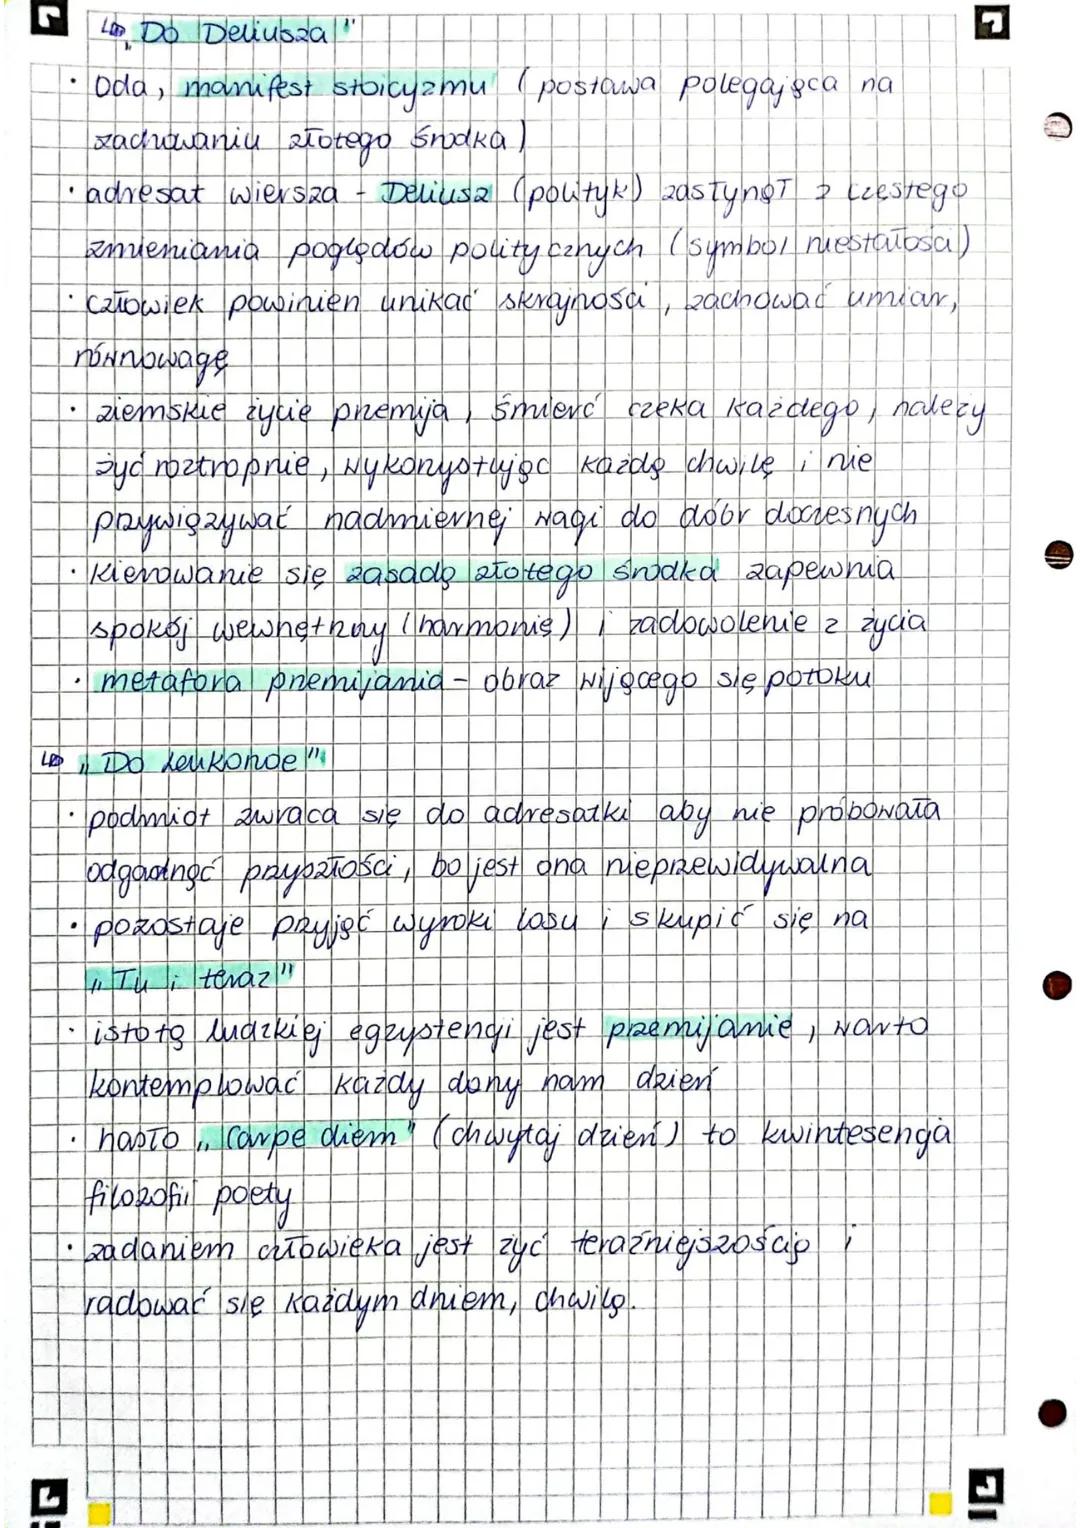 ↳ „Do Deliusza"
• Oda, manifest stoicyzmu (postawa polegająca na
zachowaniu złotego środka)
• adresat wiersza - Deliusz (polityk) zasłynął z częstego
zmieniania poglądów politycznych (symbol niestałości)
• człowiek powinien unikać skrajności, zachować umiar,
równowagę
• ziemskie życie przemija, śmierć czeka każdego, należy
żyć roztropnie, wykorzystując każdą chwilę i nie
przywiązywać nadmiernej wagi do dóbr doczesnych
• kierowanie się zasadą złotego środka zapewnia
spokój wewnętrzny (harmonię) i zadowolenie z życia
• metafora przemijania - obraz wijącego się potoku
↳ „Do Leukonoe"
• podmiot zwraca się do adresatki aby nie próbowała
odgadnąć przyszłości, bo jest ona nieprzewidywalna
• pozostaje przyjąć wyroki losu i skupić się na
„Tu i teraz"
• istotą ludzkiej egzystencji jest przemijanie, warto
kontemplować każdy dany nam dzień
• hasło „Carpe diem" (chwytaj dzień) to kwintesencja
filozofii poety
• zadaniem człowieka jest żyć teraźniejszością i
radować się każdym dniem, chwilą.